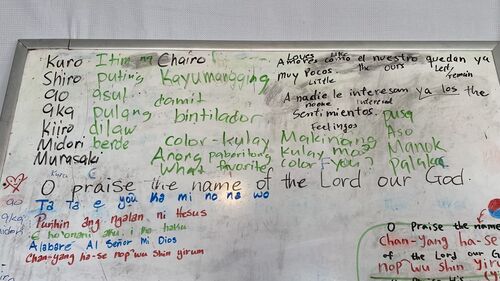 Kuro Itim ng Chairo
Shiro puting Kayumangging
ao asul damit
aka pulang bintilador
kiiro dilaw
Midori berde color-kulay
Murasaki Anong paboritong
What favorite
Makinang
kulay mo?
color You?
Loves Like
Amores como el nuestro quedan ya
Little the ours Left
muy Pocos. remain
A nadie le interesan ya los the
noone interest
sentimientos. pusa
Feelings Aso
Manok
Palaka
O praise the name of the Lord our God.
Ta ta e you ka mi no na wo
Purihin ang ngalan ni Hesus
E ho'onani aku i ka haku
Alabaré Al Señor Mi Dios
Chan-yang ha-se nop wu shin yirum
Kuro
ao
aka
midori
O Praise the name
Chan-yang ha-se
of the Lord our G
nop wu shin yiru